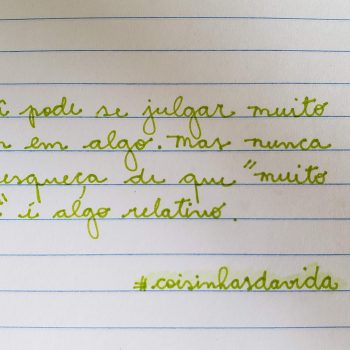 pode se julgar muito
em algo. Mas nunca
esqueça de que "muito
" é algo relativo.
#coisinhasdavida